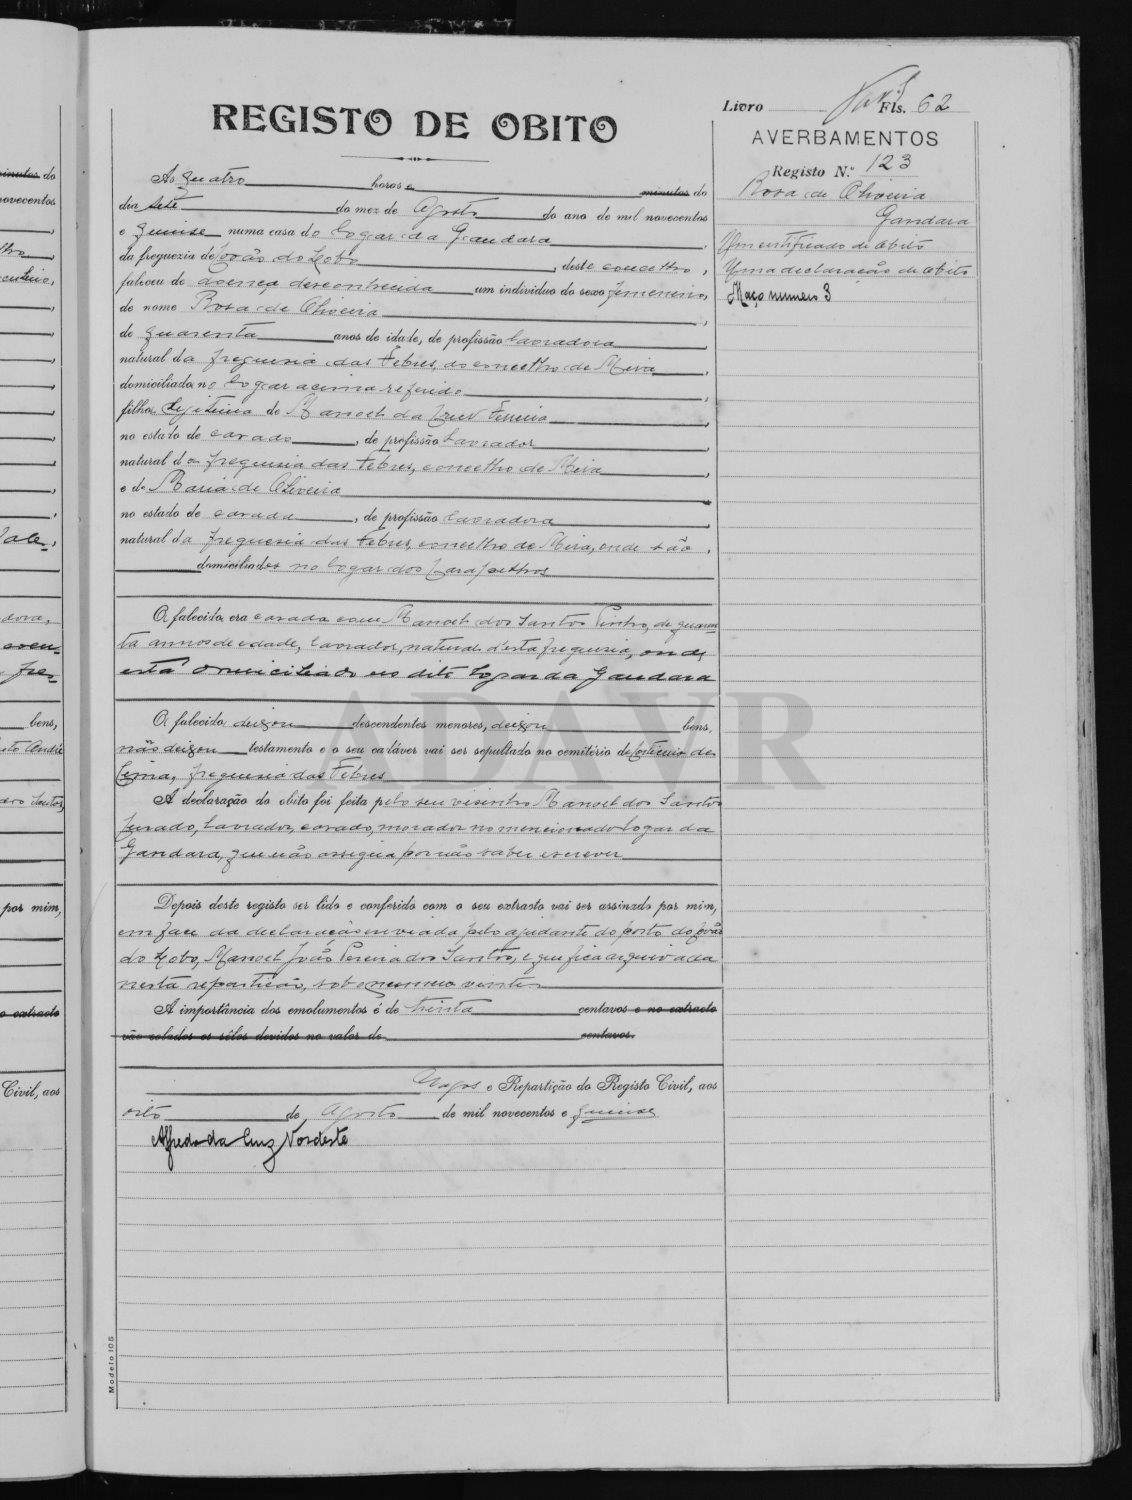 Livro Fls. 62
REGISTO DE OBITO
AVERBAMENTOS
Registo N.º 123
Rosa de Oliveira
Gandara
Um certificado de obito
Uma declaração de obito
Maço numero 3
Às quatro horas e minutos do
dia sete do mez de Agosto do ano de mil novecentos
e quinse numa casa do logar da Gandara,
da freguezia de Covão do Lobo, deste concelho,
faleceu de doença desconhecida um individuo do sexo femenino,
de nome Rosa de Oliveira,
de quarenta anos de idade, de profissão lavradora,
natural da freguesia das Febres, do concelho de Mira,
domiciliada no logar acima referido,
filha legitima de Manoel da Cruz Ferreira,
no estado de casado, de profissão lavrador,
natural da freguesia das Febres, concelho de Mira,
e de Maria de Oliveira,
no estado de casada, de profissão lavradora,
natural da freguesia das Febres, concelho de Mira, onde são,
domiciliados no logar dos
A falecida era casada com Manoel dos Santos Pintor, de quaren-
ta annos de edade, lavrador, natural d'esta freguesia, onde
está domiciliado no dito logar da Gandara
A falecida deixou descendentes menores, deixou bens,
não deixou testamento e o seu cadáver vai ser sepultado no cemitério de Corticeiro de
Cima, freguesia das Febres
A declaração do obito foi feita pelo seu visinho Manoel dos Santos
Jurado, lavrador, casado, morador no mencionado logar da
Gandara, que não assigna por não saber escrever
Depois deste registo ser lido e conferido com o seu extracto vai ser assinado por mim,
em face da declaração enviada pelo ajudante do posto do Covão
do Lobo, Manoel João Pereira dos Santos, e que fica arquivada
nesta repartição, sob o numero vinte
A importância dos emolumentos é de trinta centavos e no extracto
vão colados os sêlos devidos no valor de centavos.
Vagos e Repartição do Registo Civil, aos
oito de Agosto de mil novecentos e quinse
Alfredo da Cruz Nordeste
Modelo 105
ADAVR